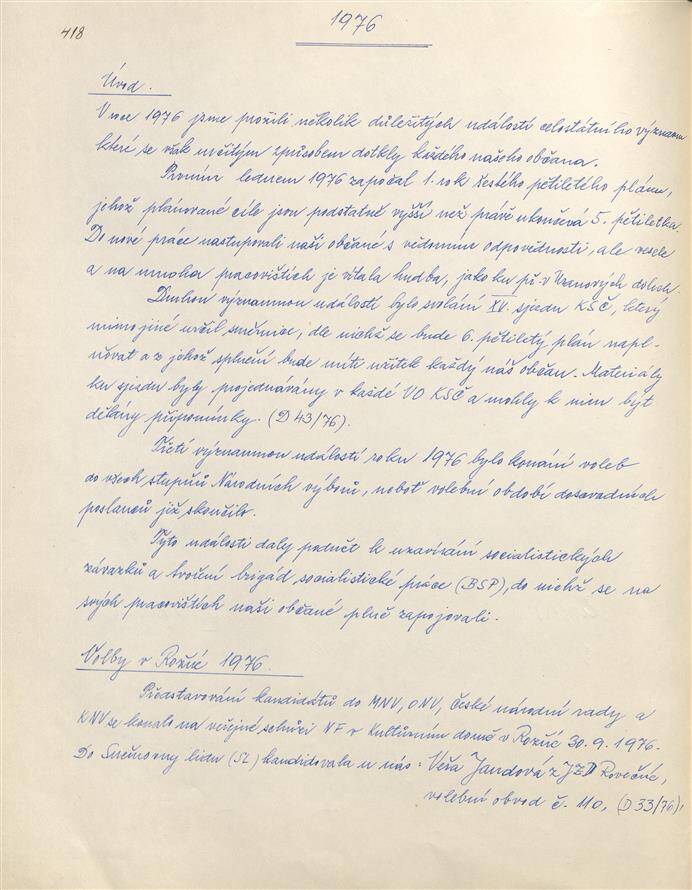 418
1976
Úvod.
V roce 1976 jsme prožili několik důležitých událostí celostátního významu
které se však určitým způsobem dotkly každého našeho občana.
Prvním lednem 1976 započal 1. rok šestého pětiletého plánu,
jehož plánované cíle jsou podstatně vyšší než právě ukončená 5. pětiletka.
Do nové práce nastupovali naši občané s vědomím odpovědnosti, ale vesele
a na mnoha pracovištích je vítala hudba, jako ku př. v Uranových dolech.
Druhou významnou událostí bylo svolání XV. sjezdu KSČ, který
mimo jiné určil směrnice, dle nichž se bude 6. pětiletý plán napl-
ňovat a z jehož splnění bude míti užitek každý náš občan. Materiály
ku sjezdu byly projednávány v každé VO KSČ a mohly k nim být
dělány připomínky. (D 43/76).
Třetí významnou událostí roku 1976 bylo konání voleb
do všech stupňů Národních výborů, neboť volební období dosavadních
poslanců již skončilo.
Tyto události daly podnět k uzavírání socialistických
závazků a tvoření brigád socialistické práce (BSP), do nichž se na
svých pracovištích naši občané plně zapojovali.
Volby v Rožné 1976.
Představování kandidátů do MNV, ONV, České národní rady a
KNV se konalo na veřejné schůzi NF v Kulturním domě v Rožné 30.9.1976.
Do Sněmovny lidu (SL) kandidovala u nás: Věra Jandová z JZD Rovečné,
volební obvod č. 110. (D 33/76).